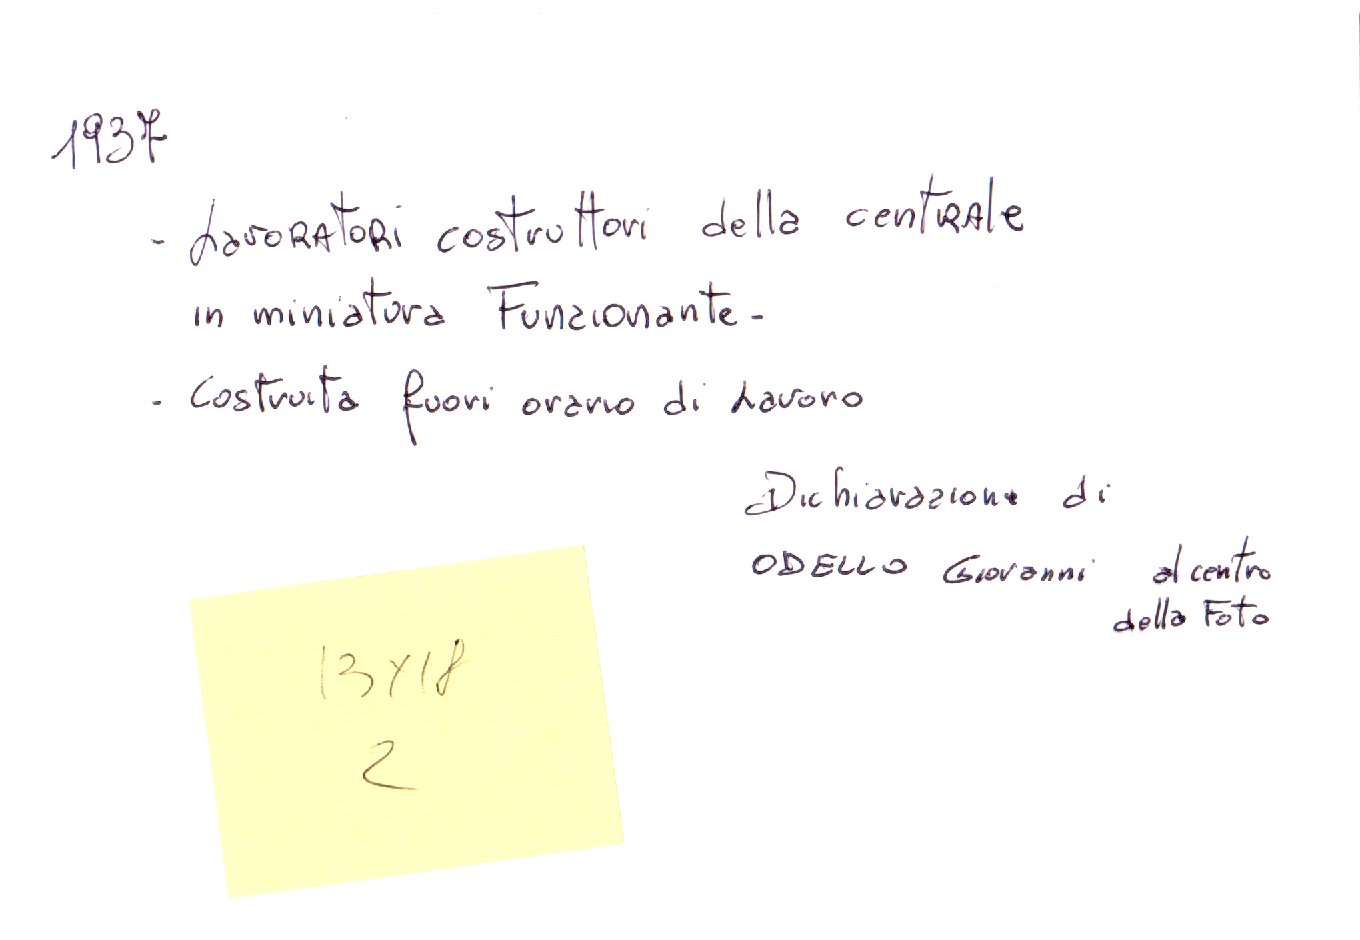 1937
- Lavoratori costruttori della centrale
in miniatura Funzionante -
- Costruita fuori orario di Lavoro
Dichiarazione di
ODELLO Giovanni al centro
della Foto
13x18
2